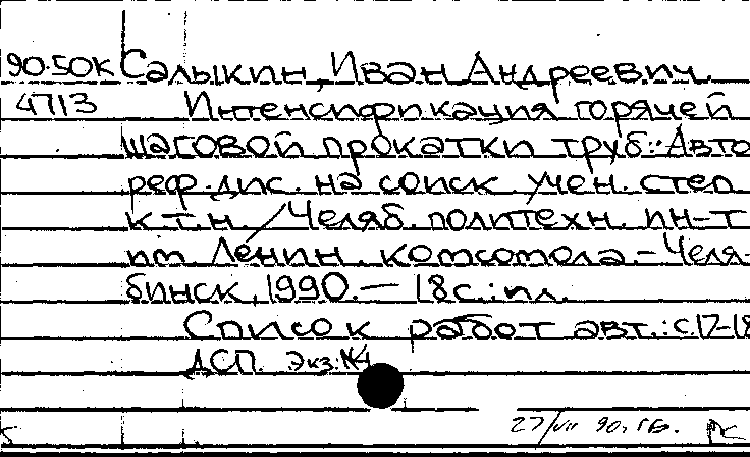 90-50К Салыкин, Иван Андреевич.
4713 Интенсификация горячей
шаговой прокатки труб: Авто
реф. дис. на соиск. учен. степ
к.т.н. / Челяб. политехн. ин-т
им. Ленин. комсомола. - Челя-
бинск, 1990. - 18 с.: ил.
Список работ авт.: с. 17-18
ДСП. Экз. №4
27/VII 90, гб.